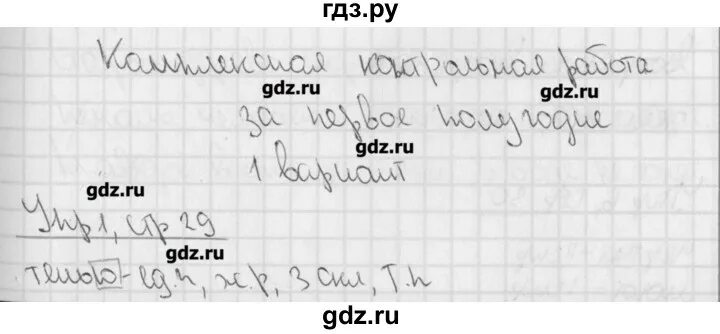 гдз.ру
Комплексная контрольная работа
gdz.ru
gdz.ru
за первое полугодие
gdz.ru
1 вариант
gdz.ru
Упр 1, стр 29
gdz.ru
тенью - ед.ч, ж.р, 3 скл, Т.п
gdz.ru